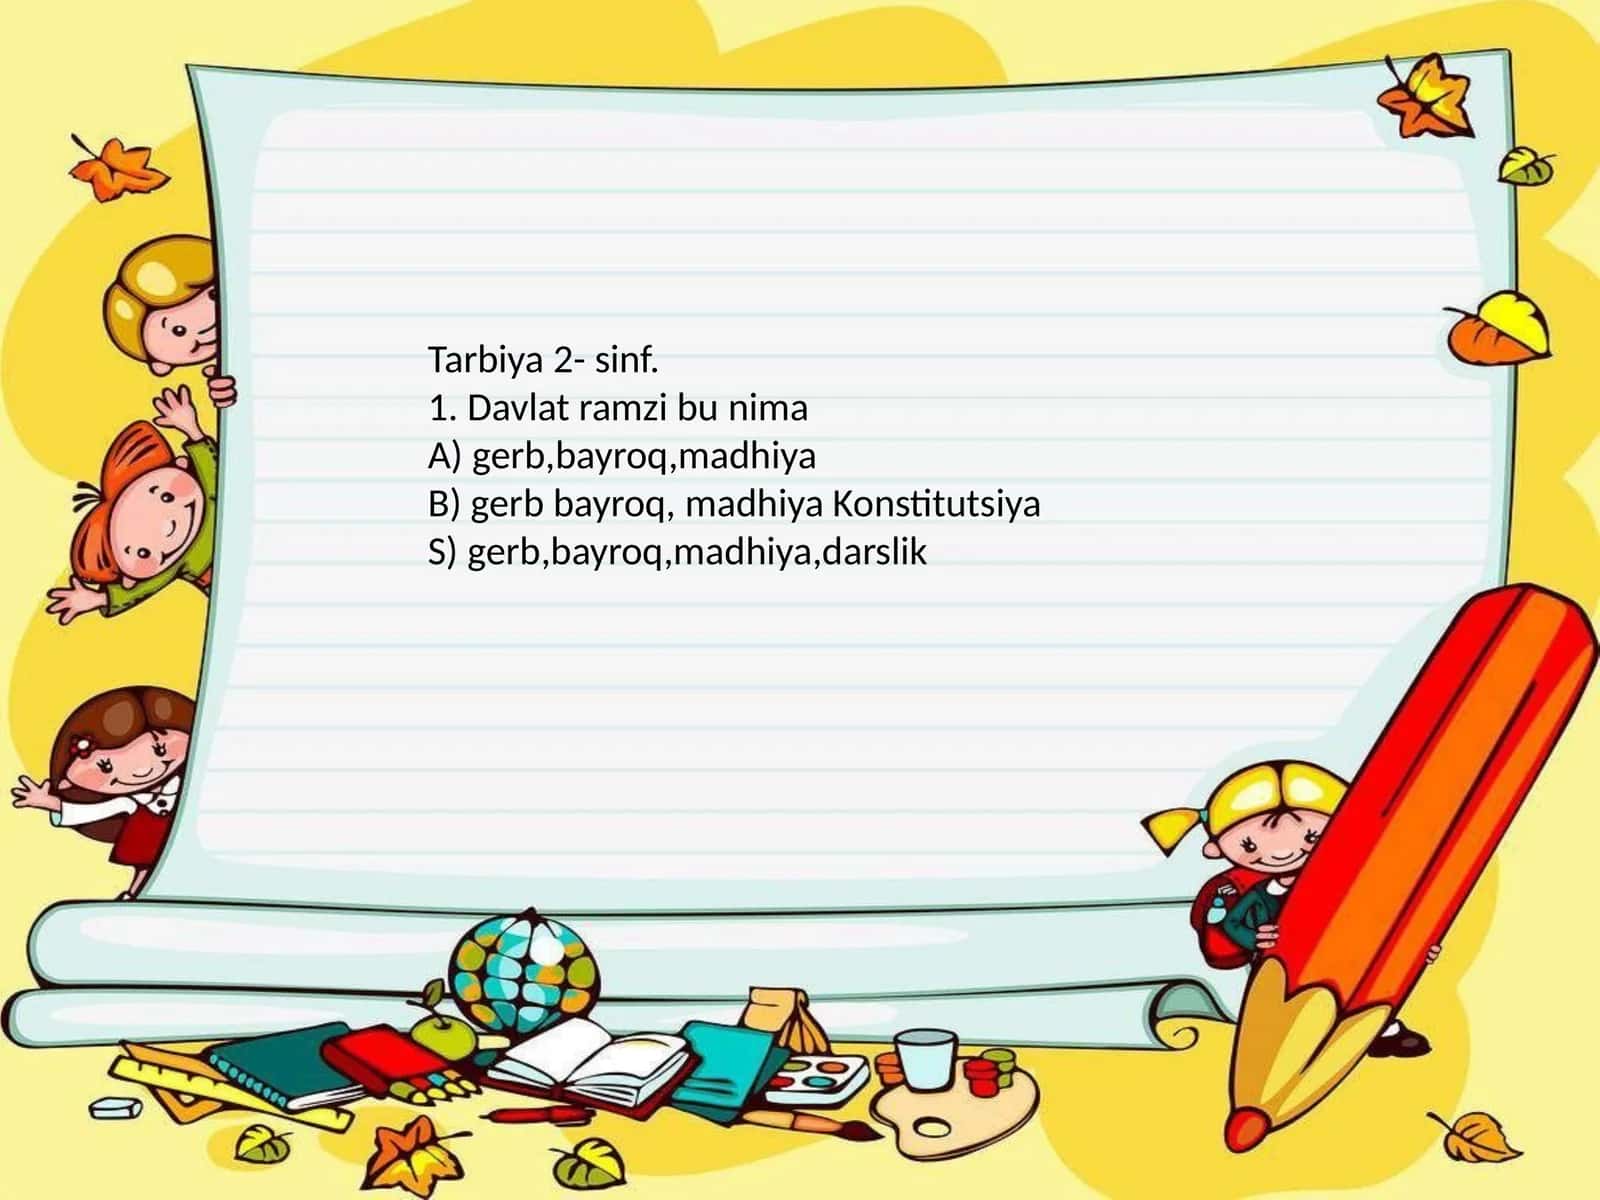 Tarbiya 2- sinf.
1. Davlat ramzi bu nima
A) gerb,bayroq,madhiya
B) gerb bayroq, madhiya Konstitutsiya
S) gerb,bayroq,madhiya,darslik